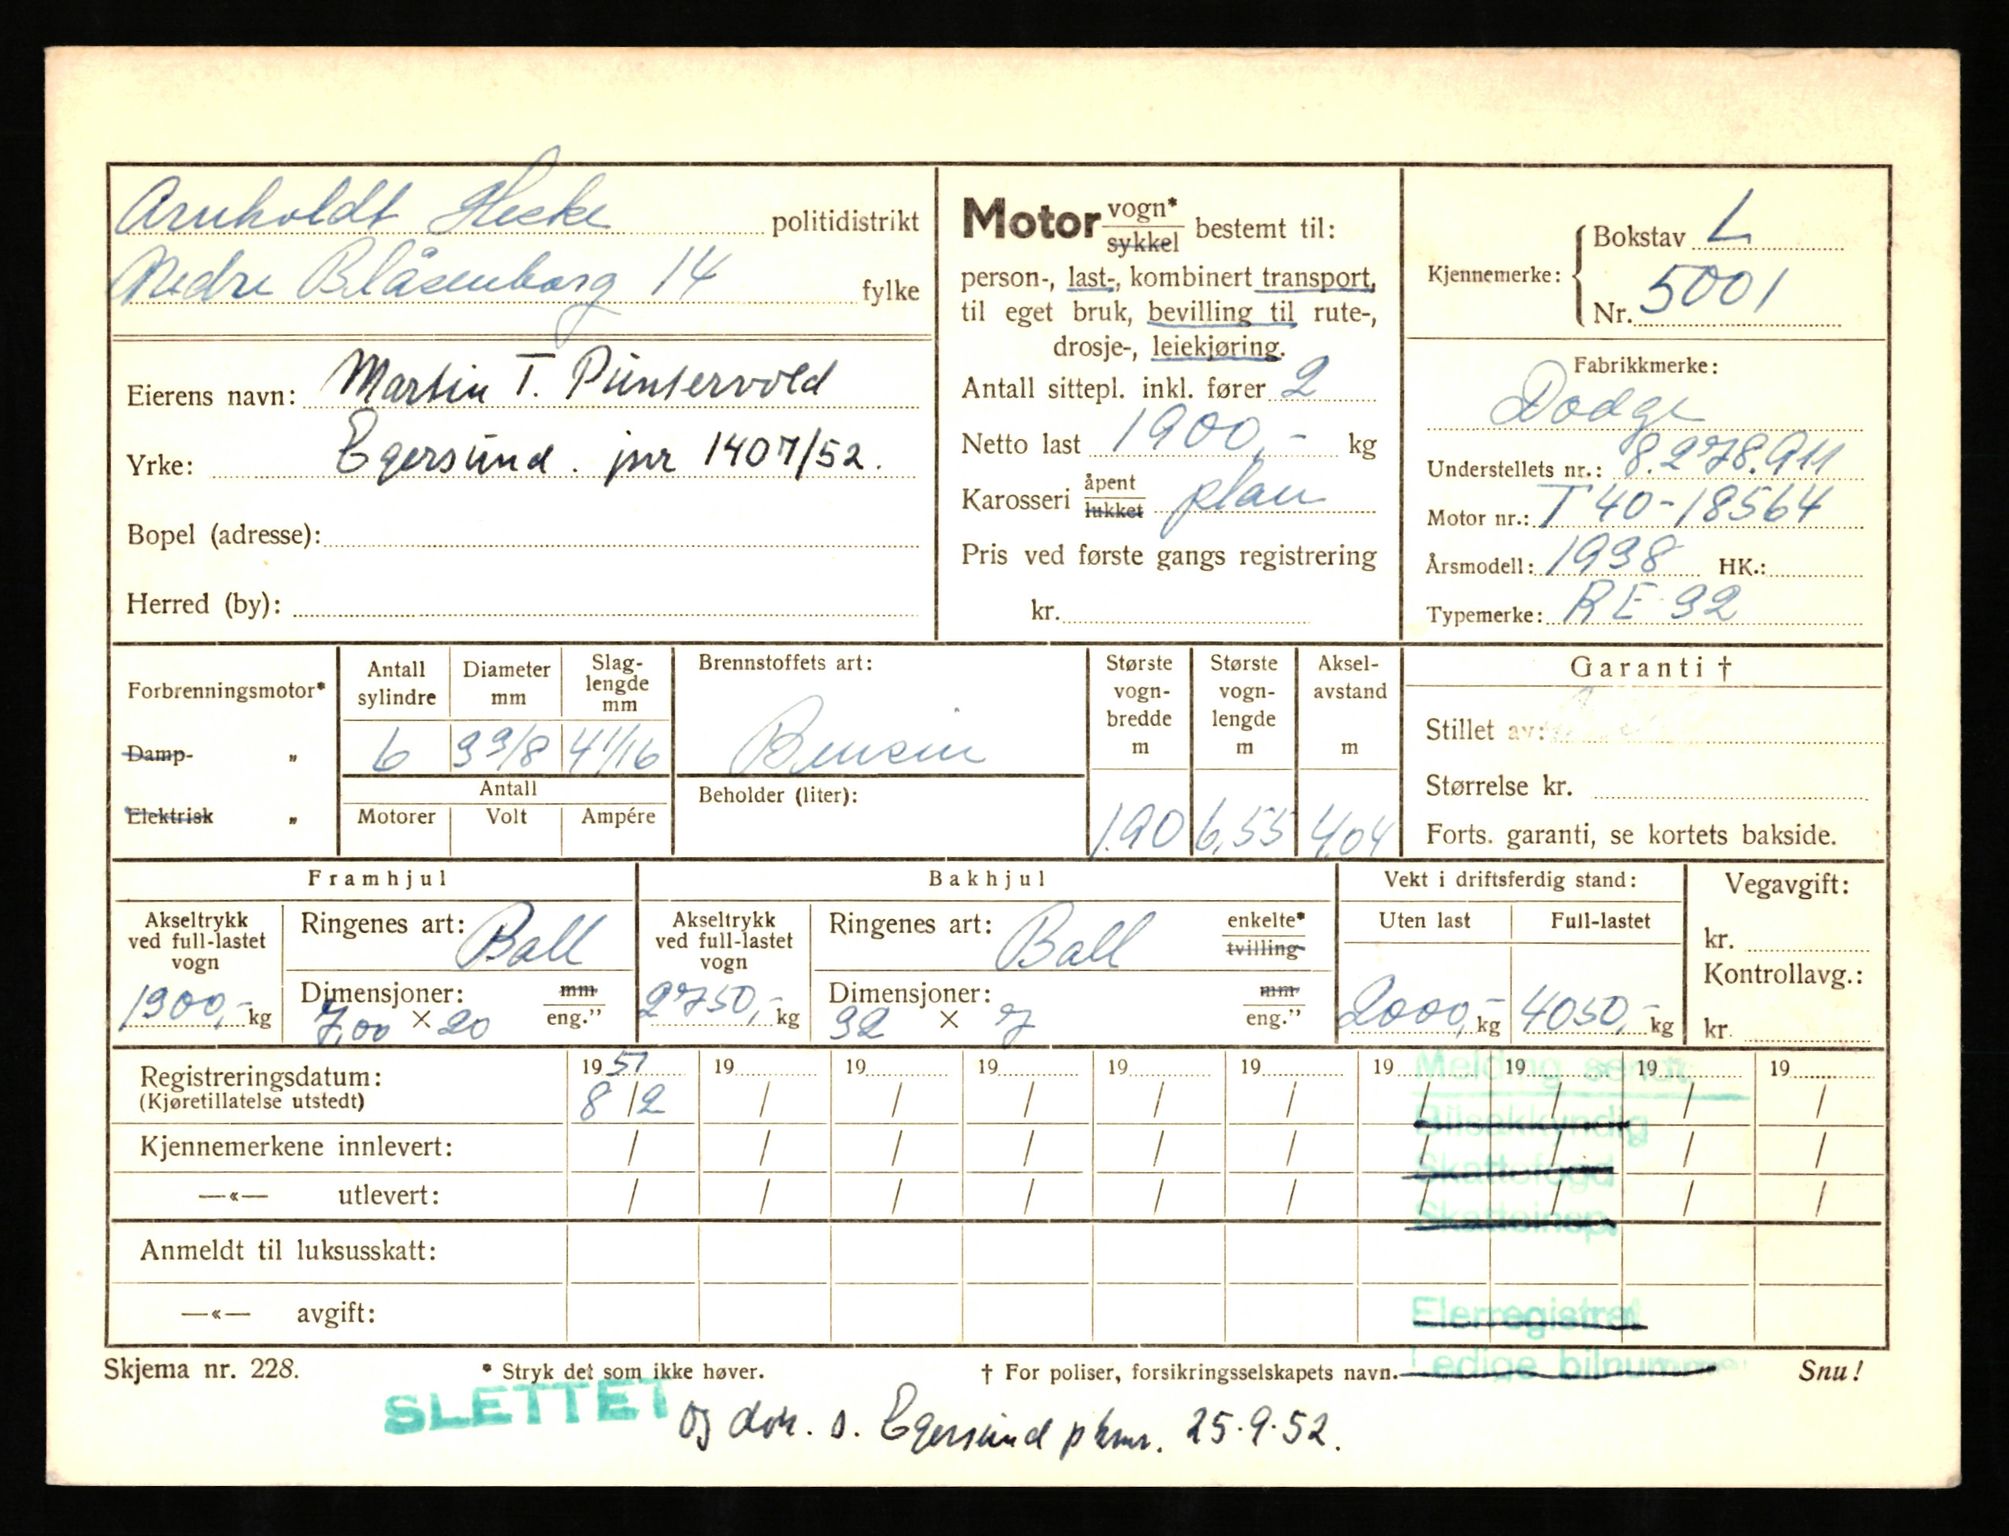 Arnholdt Hecke politidistrikt
Nedre Blåsenborg 14 fylke
Eierens navn: Martin T. Puntervold
Yrke: Egersund. jnr 1407/52.
Bopel (adresse):
Herred (by):
Motor vogn* / sykkel bestemt til:
person-, last-, kombinert transport,
til eget bruk, bevilling til rute-,
drosje-, leiekjøring.
Antall sittepl. inkl. fører 2
Netto last 1900,- kg
Karosseri åpent / lukket plan
Pris ved første gangs registrering
kr.
Kjennemerke: Bokstav L
Nr. 5001
Fabrikkmerke:
Dodge
Understellets nr.: 8.278.911
Motor nr.: T 40-18564
Årsmodell: 1938 HK.:
Typemerke: RE 32
Forbrenningsmotor*
Damp- „
Elektrisk „
Antall sylindre
6
Diameter mm
3 3/8
Slag-lengde mm
4 1/16
Antall
Motorer Volt Ampére
Brennstoffets art:
Bensin
Beholder (liter):
Største vogn-bredde m
1.90
Største vogn-lengde m
6,55
Aksel-avstand m
4,04
Garanti †
Stillet av:
Størrelse kr.
Forts. garanti, se kortets bakside.
Framhjul
Akseltrykk ved full-lastet vogn
1300,- kg
Ringenes art: Ball
Dimensjoner: mm / eng."
7,00 × 20
Bakhjul
Akseltrykk ved full-lastet vogn
2750,- kg
Ringenes art: Ball enkelte* / tvilling
Dimensjoner: mm / eng."
32 × 7
Vekt i driftsferdig stand:
Uten last Full-lastet
2000,- kg 4050,- kg
Vegavgift:
kr.
Kontrollavg.:
kr.
Registreringsdatum: 1951 19 19 19 19 19 19 19 19 19
(Kjøretillatelse utstedt) 8/2 / / / / / / / / /
Kjennemerkene innlevert: / / / / / / / / / /
—«— utlevert: / / / / / / / / / /
Anmeldt til luksusskatt:
—«— avgift:
Melding sendt:
Bilsakkyndig
Skattefogd
Skatteinsp.
Eierregistret
Ledige bilnummer
Skjema nr. 228. * Stryk det som ikke høver. † For poliser, forsikringsselskapets navn. Snu!
SLETTET og dok. s. Egersund pkmr. 25.9.52.